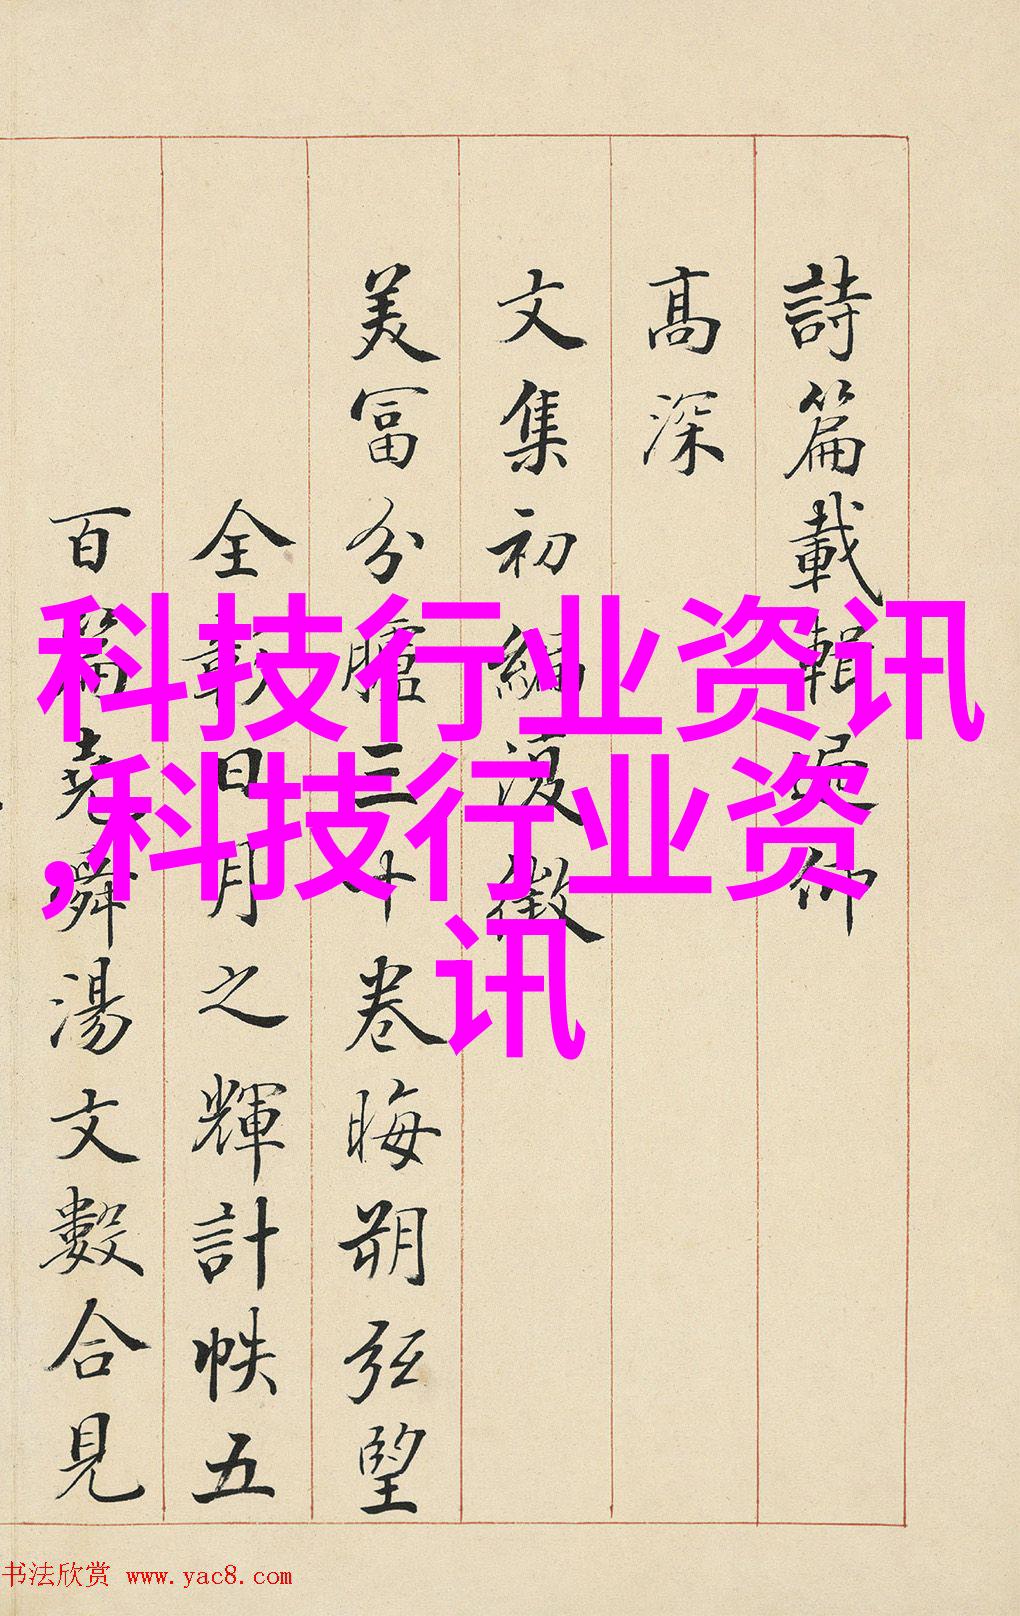 詩篇載輯遍仰
高深
文集初編復徵
美富分臚三十卷晦朔弦望
全彰日月之輝計帙五
百篇堯舜湯文數合見
科技行业资讯
,科技行业资
讯
书法欣赏 www.yac8.com